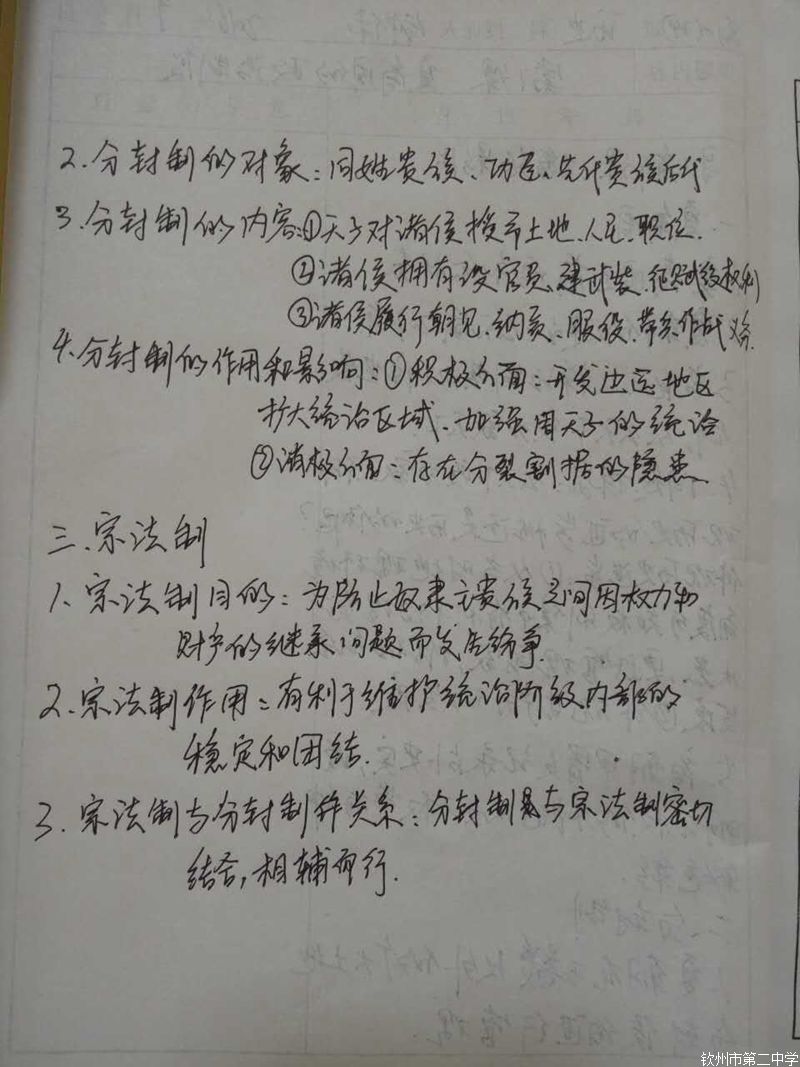 2. 分封制的对象：同姓贵族、功臣、先代贵族后代
3. 分封制的内容：①天子对诸侯授予土地、人民、职位.
②诸侯拥有设官员、建武装、征赋役权利
③诸侯履行朝见、纳贡、服役、带兵作战义务.
4. 分封制的作用和影响：①积极方面：开发边远地区
扩大统治区域、加强周天子的统治
②消极方面：存在分裂割据的隐患
三、宗法制
1、宗法制目的：为防止奴隶主贵族之间因权力和
财产的继承问题而发生纷争
2、宗法制作用：有利于维护统治阶级内部的
稳定和团结.
3. 宗法制与分封制关系：分封制与宗法制密切
结合，相辅而行.
钦州市第二中学